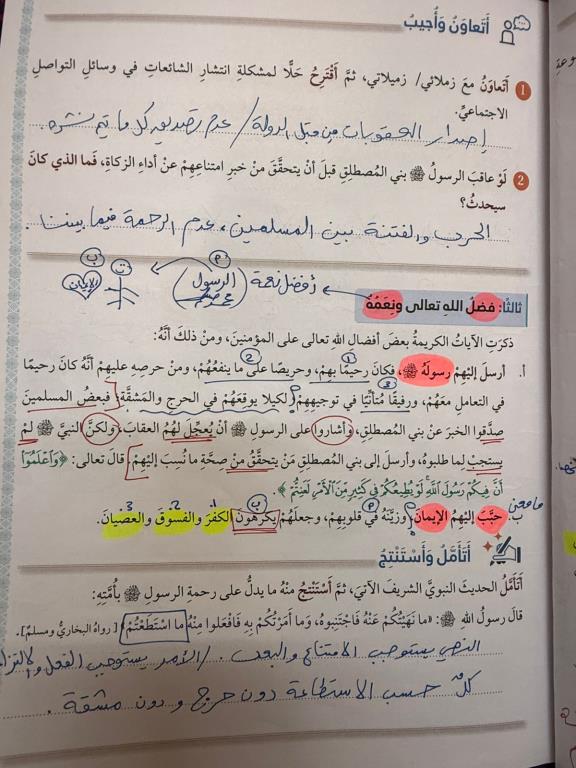 أَتَعاوَنُ وَأُجيبُ
1 أَتَعاوَنُ معَ زملائي/ زميلاتي، ثمَّ أَقْتَرِحُ حَلًّا لمشكلةِ انتشارِ الشائعاتِ في وسائلِ التواصلِ
الاجتماعيِّ.
إصدار العقوبات من قبل الدولة / عدم تصديق كل ما يتم نشره.
2 لَوْ عاقبَ الرسولُ ﷺ بني المُصطلِقِ قبلَ أنْ يتحقَّقَ منْ خبرِ امتناعِهِمْ عنْ أداءِ الزكاةِ، فَما الذي كانَ
سيحدثُ؟
الحرب والفتنة بين المسلمين، عدم الرحمة فيما بيننا
ب أ
الإيمان الرسول محمد ﷺ أفضل نعمة
ثالثًا: فضلُ اللهِ تعالى ونِعَمُهُ
ذكرَتِ الآياتُ الكريمةُ بعضَ أفضالِ اللهِ تعالى على المؤمنينَ، ومنْ ذلكَ أنَّهُ:
أ. أرسلَ إليْهِمْ رسولَهُ ﷺ، فكانَ رحيمًا بهِمْ، وحريصًا على ما ينفعُهُمْ، ومنْ حرصِهِ عليهِمْ أنَّهُ كانَ رحيمًا
1 2
في التعاملِ معَهُمْ، ورفيقًا متأنِّيًا في توجيهِهِمْ؛ لكيلا يوقِعَهُمْ في الحرجِ والمَشقَّةِ؛ فبعضُ المسلمينَ
3
صدَّقوا الخبرَ عنْ بني المصطلِقِ، وأشاروا على الرسولِ ﷺ أنْ يُعجِّلَ لهُمُ العقابَ، ولكنَّ النبيَّ ﷺ لمْ
يستجبْ لِما طلبوهُ، وأرسلَ إلى بني المصطلِقِ مَنْ يتحقَّقُ منْ صحَّةِ ما نُسِبَ إليْهِمْ، قالَ تعالى: ﴿وَاعْلَمُوا
أَنَّ فِيكُمْ رَسُولَ اللَّهِ لَوْ يُطِيعُكُمْ فِي كَثِيرٍ مِنَ الْأَمْرِ لَعَنِتُّمْ﴾.
ما معنى
ب أ 1 2 3
ب. حبَّبَ إليْهِمُ الإيمانَ، وزيَّنَهُ في قلوبِهِمْ، وجعلَهُمْ يكرهونَ الكفرَ والفسوقَ والعصيانَ.
أَتَأَمَّلُ وَأَسْتَنْتِجُ
أَتَأَمَّلُ الحديثَ النبويَّ الشريفَ الآتيَ، ثمَّ أَسْتَنْتِجُ منْهُ ما يدلُّ على رحمةِ الرسولِ ﷺ بأُمَّتِهِ:
قالَ رسولُ اللهِ ﷺ: «ما نَهَيْتُكُمْ عَنْهُ فَاجْتَنِبوهُ، وَما أَمَرْتُكُمْ بِهِ فَافْعَلوا مِنْهُ ما اسْتَطَعْتُمْ» [رواهُ البخاريُّ ومسلمٌ].
النهي يستوجب الامتناع والبعد. / الأمر يستوجب الفعل
كلٌ حسب الاستطاعة دون حرج و دون مشقة.